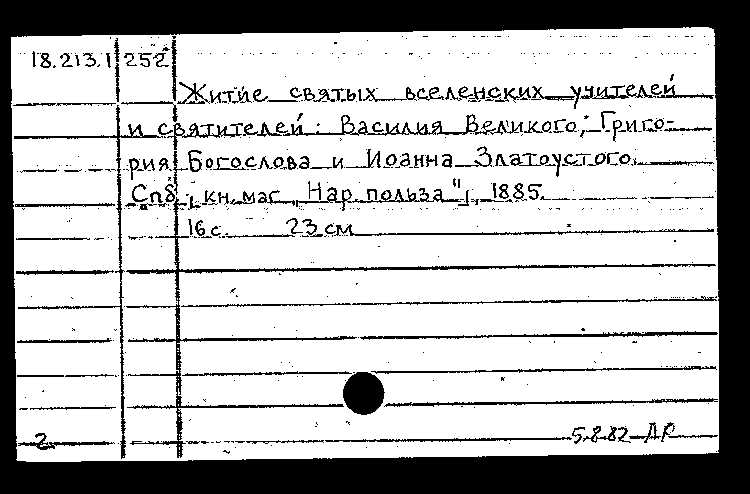 18.213.1 252
Житие святых вселенских учителей
и святителей: Василия Великого, Григо-
рия Богослова и Иоанна Златоустого.
Спб., [кн. маг. "Нар. польза"], 1885.
16 с. 23 см
2 5.8.82 ДР